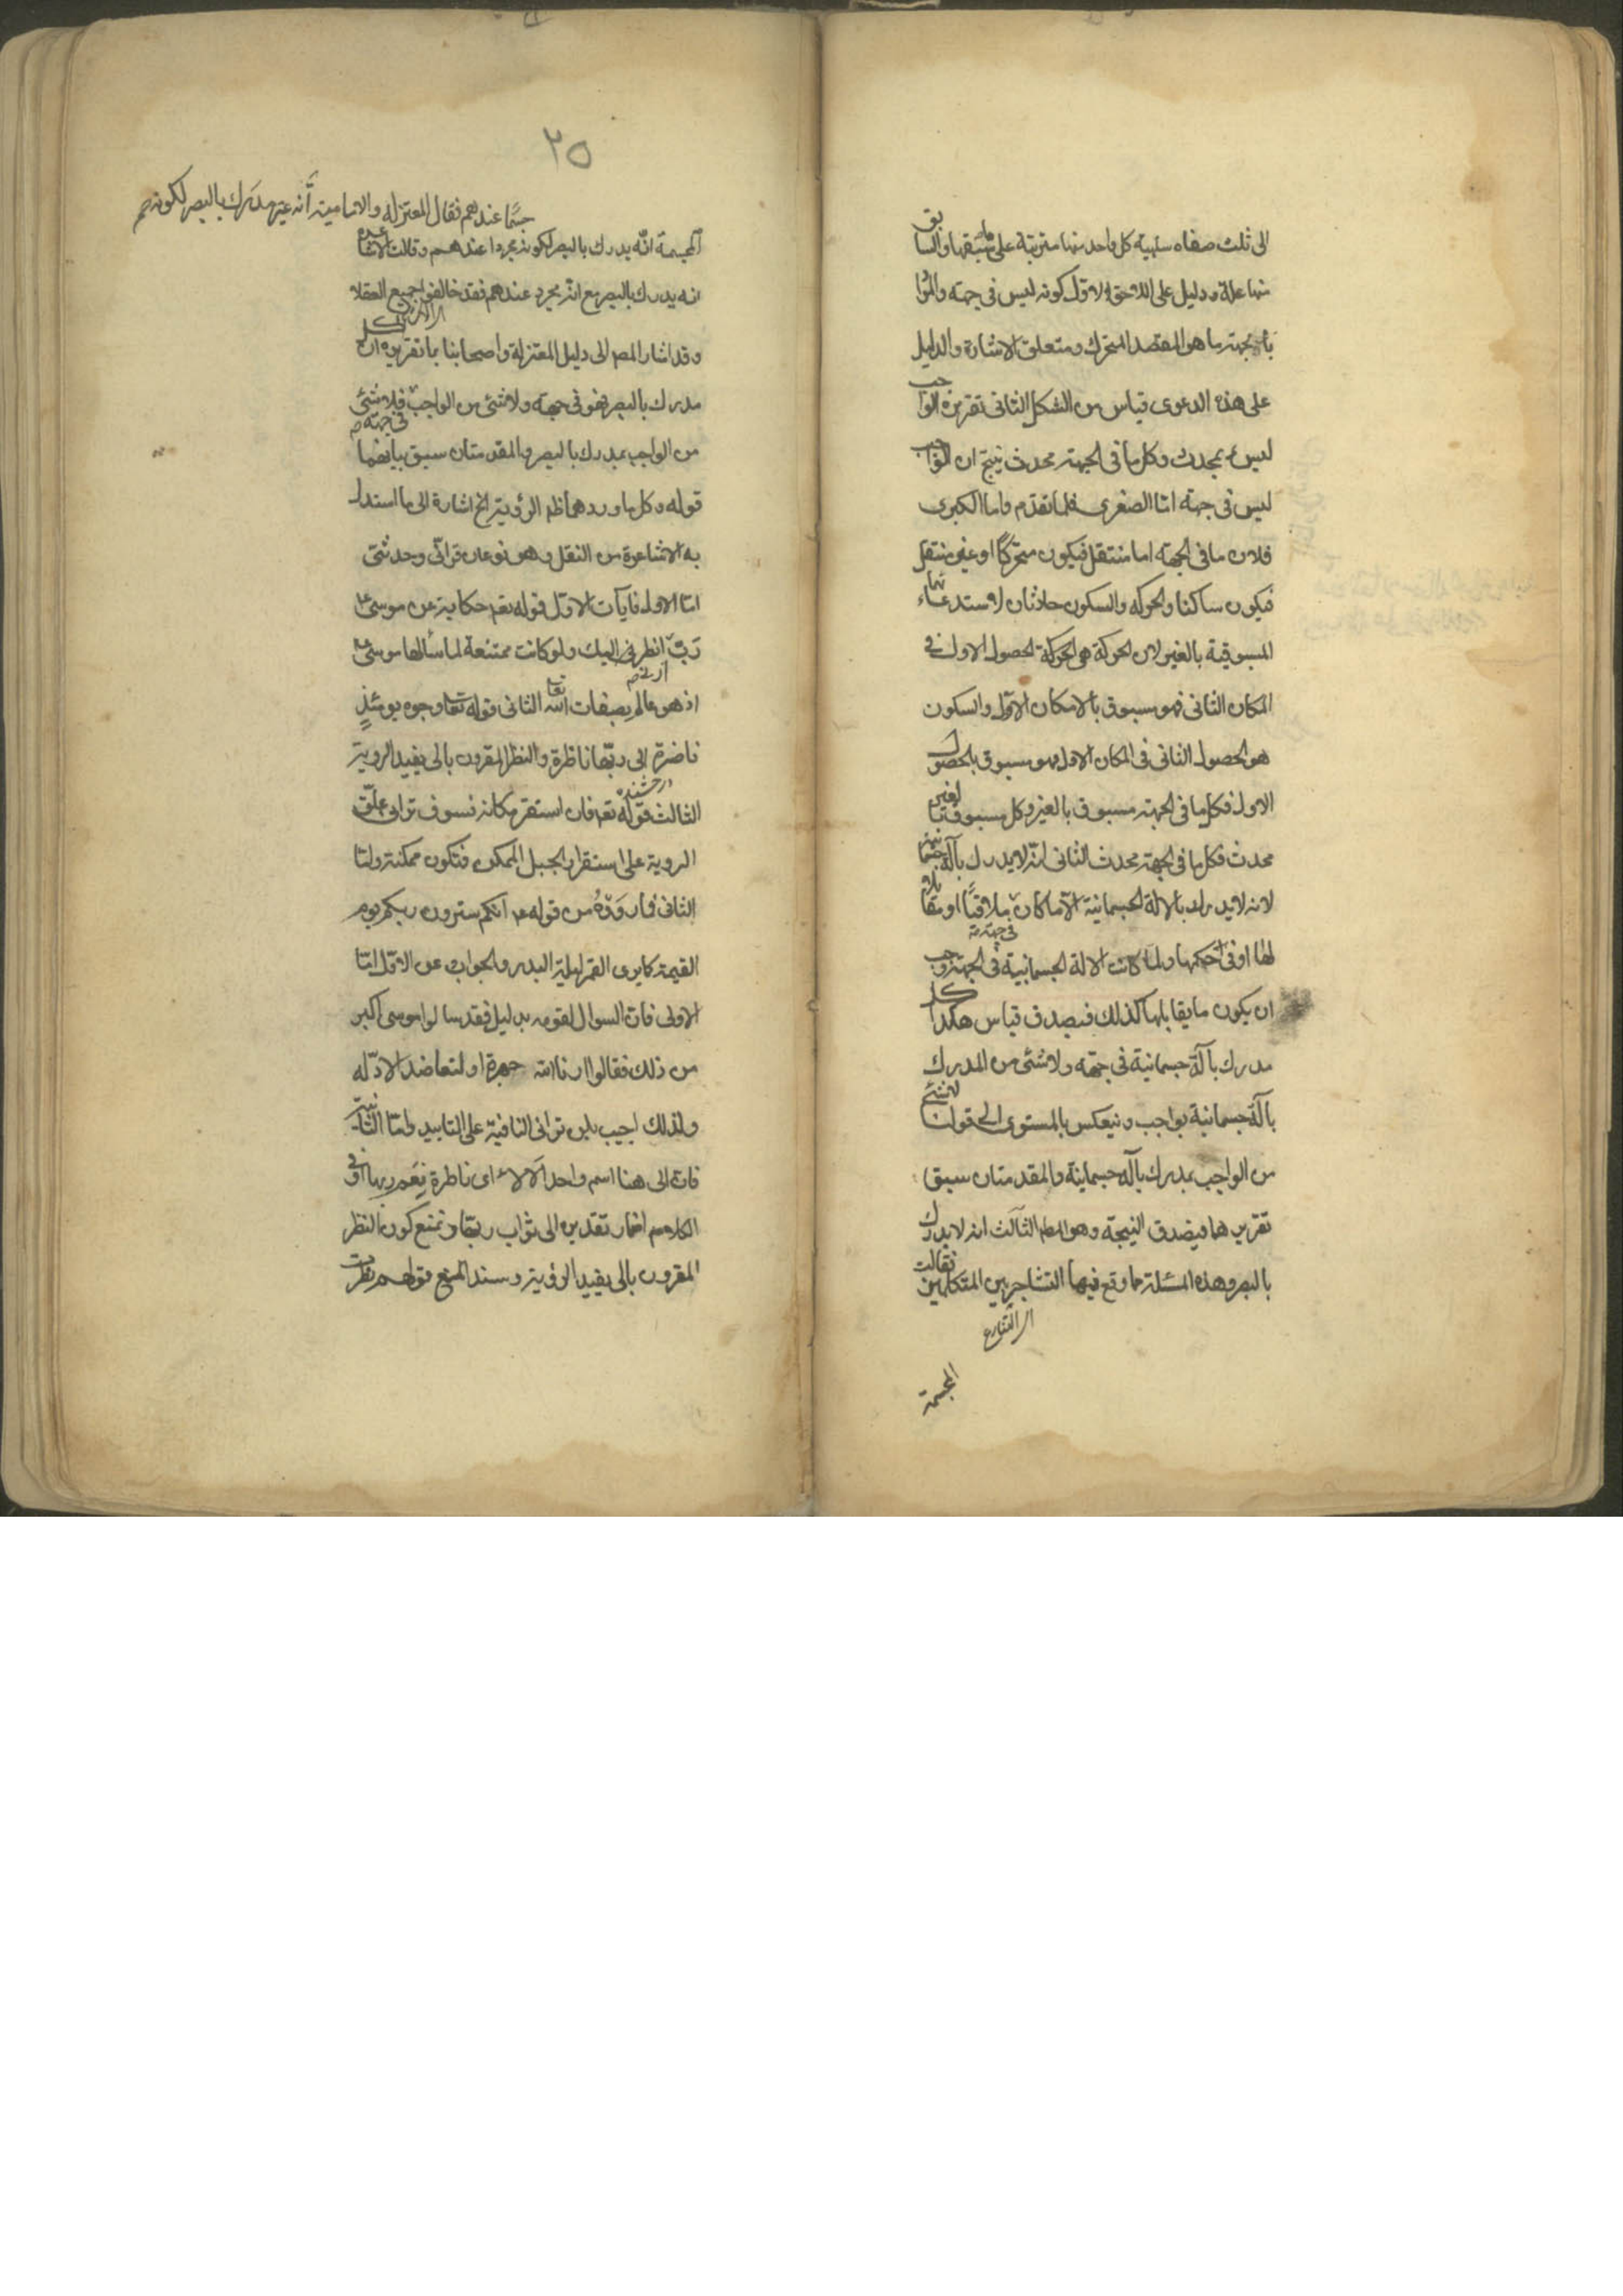 الى ثلث صفاه سلبية كل واحد منها مترتبة على ما سبقها والسابق
منها علة ودليل على اللاحق الاول كونه ليس في جهته والمراد
بالجهته ما هو المقصد المتحرك ومتعلق الاشارة والدليل
على هذه الدعوى قياس من الشكل الثاني تقريره الواجب
ليس بمحدث وكل ما في الجهته محدث ينتج ان الواجب
ليس في جهته اما الصغرى فلما تقدم واما الكبرى
فلان ما في الجهته اما منتقل فيكون متحركا او غير منتقل
فيكون ساكنا والحركه والسكون حادثان لاستدعائهما
المسبوقية بالغير لان الحركة هي الحركة الحصول الاول في
المكان الثاني فهو مسبوق بالامكان الاول والسكون
هو الحصول الثاني في المكان الاول فهو مسبوق بالحصول
الاول فكل ما في الجهته مسبوق بالغير وكل مسبوق بالغير
محدث فكل ما في الجهته محدث الثاني انه لا يدرك بآلة جسمانية
لانه لا يدرك بالالة الجسمانية الا ما كان ملاقيا او مقابلا
لها او في حكمها ولما كانت الالة الجسمانية في الجهته وجب
في جهته
ان يكون ما يقابلها كذلك فيصدق قياس هكذا كل
مدرك بآلة جسمانية في جهته ولا شئ من المدرك
بآلة جسمانية بواجب وينعكس بالمستوى الى قولنا لا شئ
من الواجب بمدرك بآله جسمانية والمقدمتان سبق
تقريرهما فيصدق النتيجته وهو المط الثالث انه لا يدرك
بالبصر وهذه المسئلة مما وقع فيها التشاجر بين المتكلمين فقالت
المجسمة
٢٥
جسما عندهم فقال المعتزله والامامية انه غير مدرك بالبصر لكونه
المجسمة انه يدرك بالبصر لكونه مجردا عندهم وقالت الاشاعره
انه يدرك بالبصر مع انه مجرد عندهم فقد خالفوا جميع العقلاء
وقد اشار المص الى دليل المعتزلة واصحابنا بما تقريره ان كل
مدرك بالبصر فهو في جهته ولا شئ من الواجب فلا شئ
في جهته
من الواجب بمدرك بالبصر والمقدمتان سبق بيانهما
قوله وكل ما ورد مما ظ الرؤية الخ اشارة الى ما استدل
به الاشاعرة من النقل وهو نوعان قرآنى وحديثى
اما الاول فايات الاول قوله تعم حكاية عن موسى ع
رب انظرنى اليك ولو كانت ممتنعة لما سألها موسى ع
ارنى
اذ هو عالم بصفات الله تعا الثانى قوله تعا وجوه يومئذ
ناضرة الى ربها ناظرة والنظر المقرون بالى يفيد الروية
درخشنده
الثالث قوله تعم فان استقر مكانه فسوف ترانى علق
الروية على استقرار الجبل الممكن فتكون ممكنة واما
الثانى فما رووه من قوله ع انكم سترون ربكم يوم
القيمة كما يرى القمر ليلة البدر والجواب عن الاول اما
الاولى فان السوال لقومه بدليل فقد سالوا موسى اكبر
من ذلك فقالوا ارنا الله جهرة او لتعاضد الادله
ولذلك اجيب بلن ترانى النافية على التابيد واما الثانية
فان الى هنا اسم واحد الالاء اى ناظرة نعم ربها او في
الكلام اضمار تقديره الى ثواب ربها ونمنع كون النظر
المقرون بالى يفيد الرؤية وسند المنع قولهم نظرت